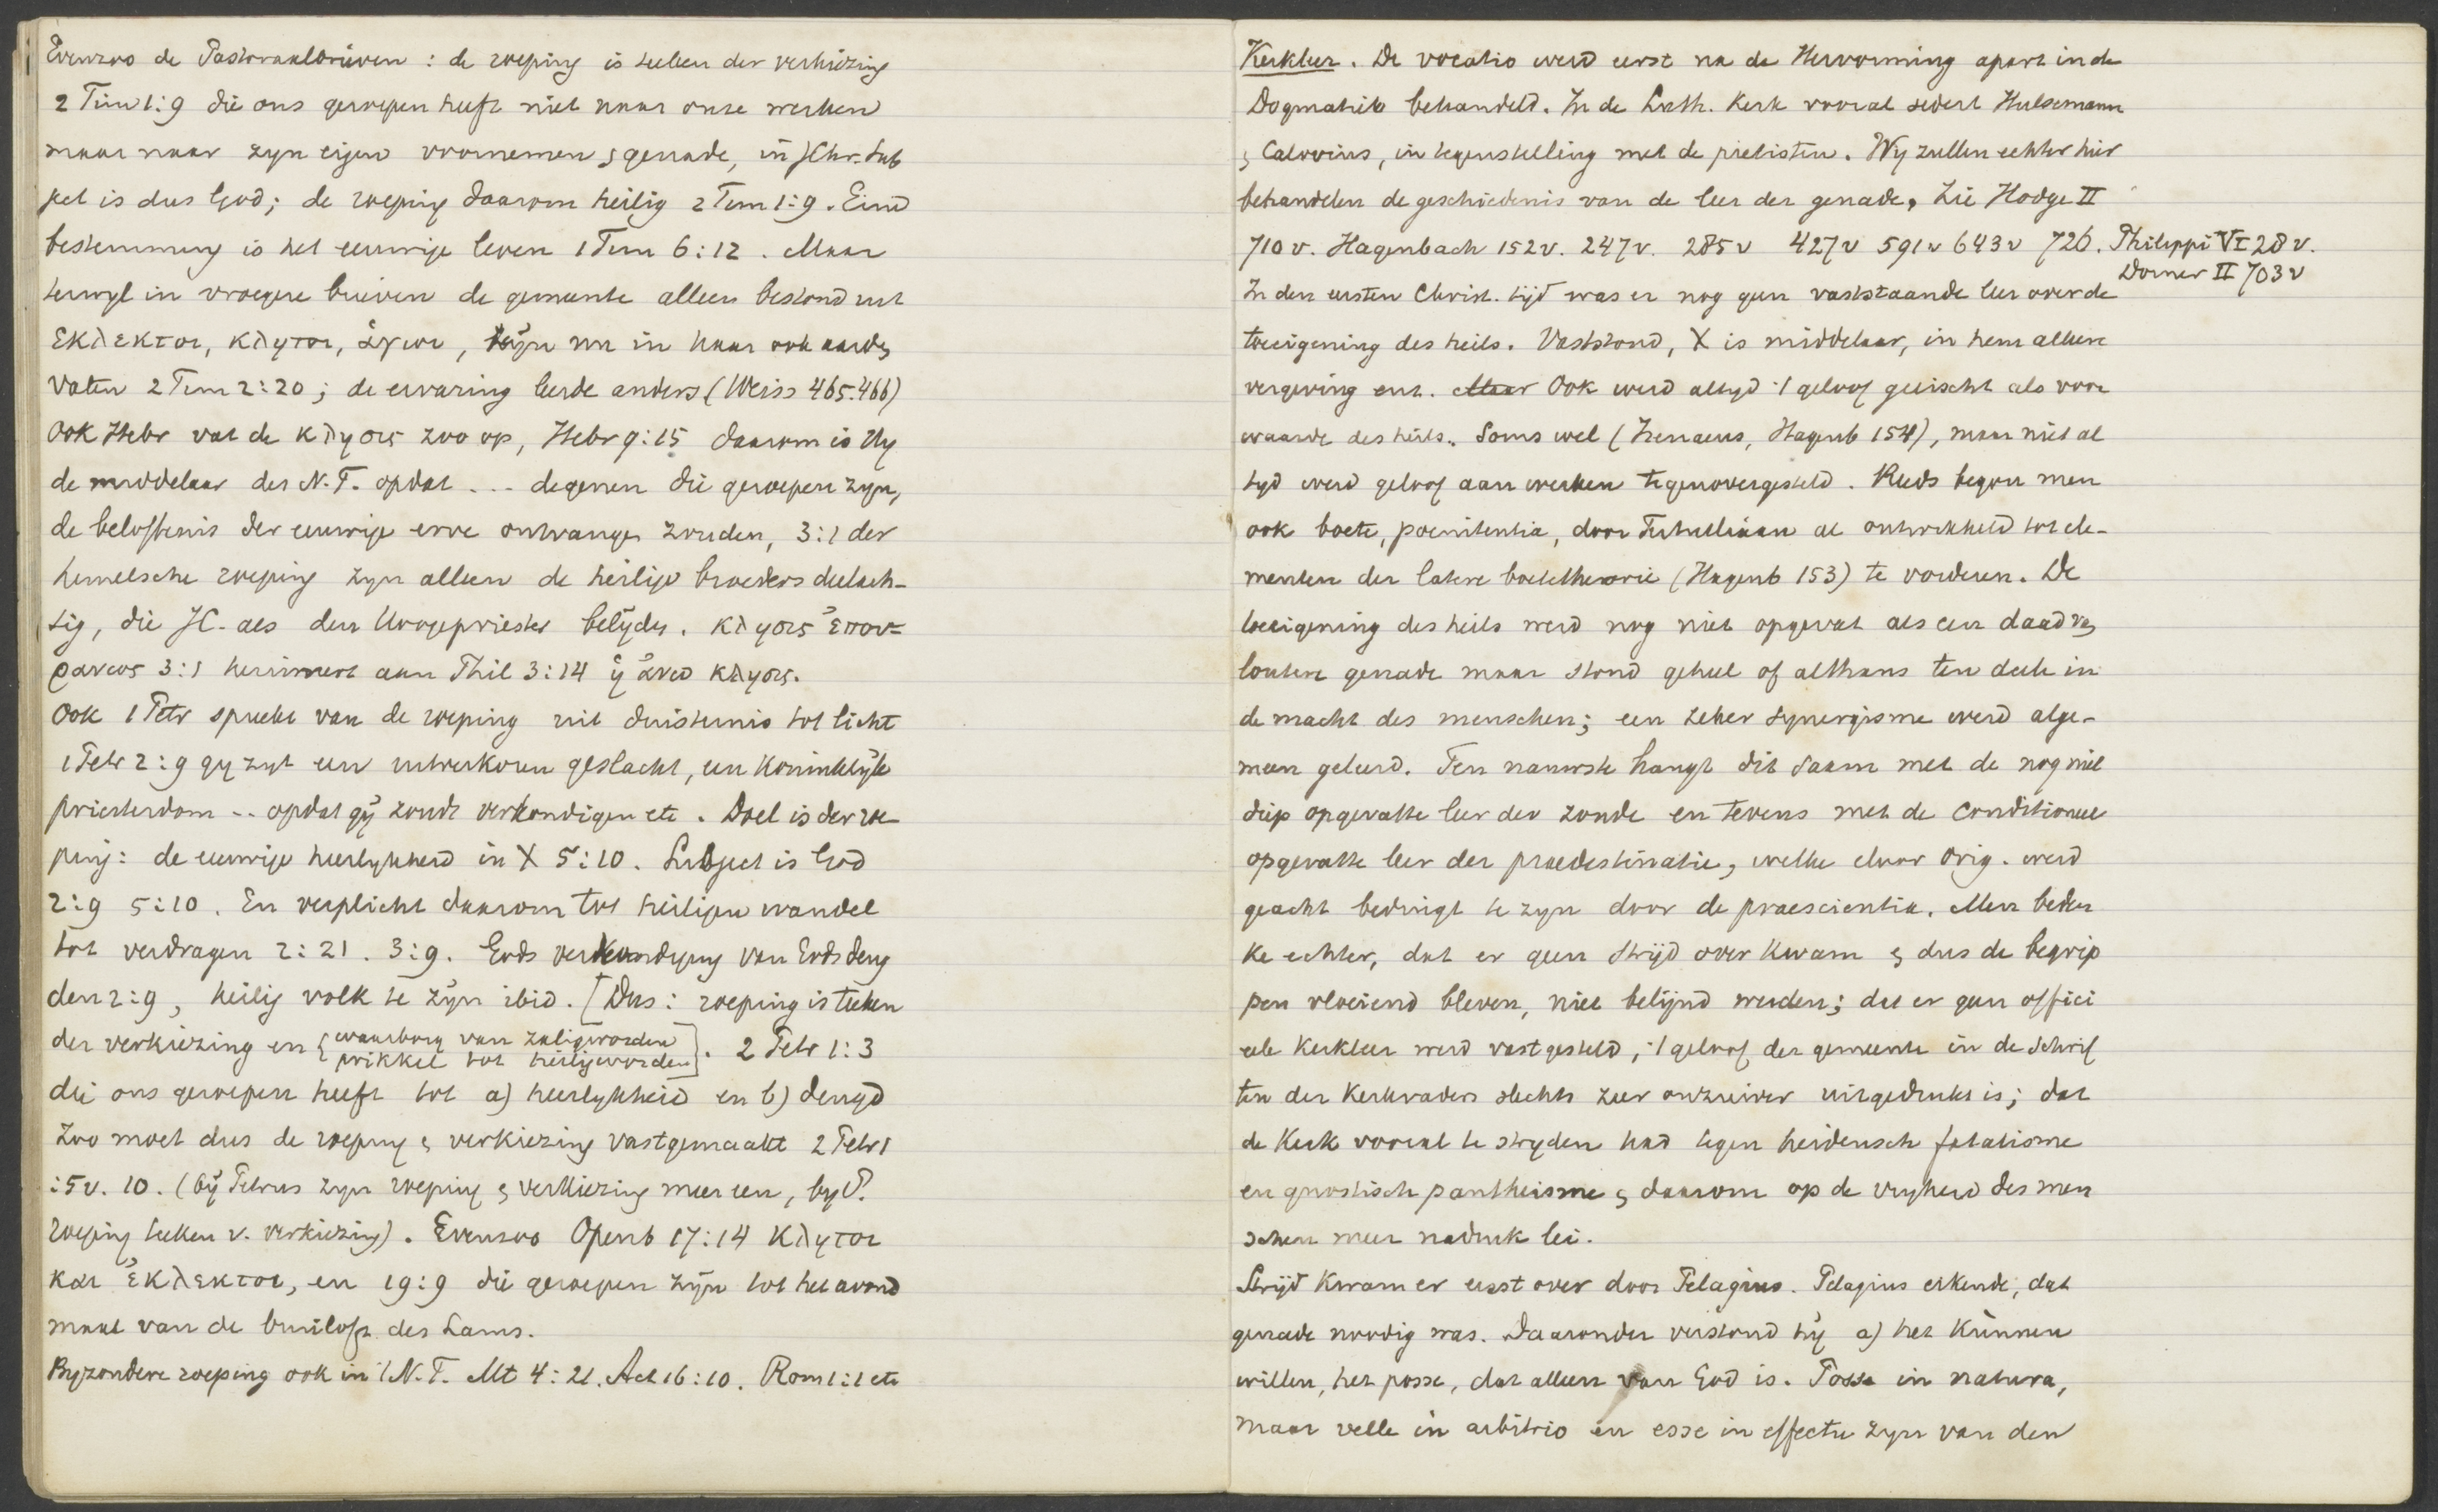 Evenzoo de Pastoraalbrieven : de roeping is teeken der verkiezing
2 Tim 1:9 die ons geroepen heeft niet naar onze werken
maar naar zyn eigen voornemen & genade, in JChr. Sub
ject is dus God; de roeping daarom heilig 2 Tim 1:9. Eind
bestemming is het eeuwige leven 1 Tim 6:12. Maar
terwyl in vroegere brieven de gemeente alleen bestond uit
εκλεκτοι, κλητοι, ἁγιοι, zijn nu in haar ook aarden
vaten 2 Tim 2:20; de ervaring leerde anders (Weiss 465.466)
Ook Hebr vat de κλησις zoo op, Hebr 9:15 daarom is Hy
de middelaar des N.T. opdat ... degenen die geroepen zyn,
de beloftenis der eeuwige erve ontvangen zouden, 3:1 der
hemelsche roeping zyn alleen de heilige broeders deelach-
tig, die JC. als den Hoogepriester belijden. κλησις ἐπου-
ρανιος 3:1 herinnert aan Phil 3:14 ἡ ἀνω κλησις.
Ook 1 Petr spreekt van de roeping uit duisternis tot licht
1 Petr 2:9 gy zyt een uitverkoren geslacht, een Koninklijk
priesterdom -- opdat gij zoudt verkondigen etc. Doel is der roe
ping: de eeuwige heerlykheid in X 5:10. Subject is God
2:9 5:10. En verplicht daarom tot heiligen wandel
tot verdragen 2:21. 3:9. Gods verkondiging van Gods deug
den 2:9, heilig volk te zijn ibid. [Dus: roeping is teeken
der verkiezing en { waarborg van zaligworden
prikkel tot heiligworden]. 2 Petr 1:3
die ons geroepen heeft tot a) heerlykheid en b) deugd
Zoo moet dus de roeping & verkiezing vastgemaakt 2 Petr 1
:5v. 10. (bij Petrus zyn roeping & verkiezing meer een, by P.
roeping teeken v. verkiezing). Evenzoo Openb 17:14 κλητοι
και ἐκλεκτοι, en 19:9 die geroepen zijn tot het avond
maal van de bruiloft des Lams.
Byzondere roeping ook in 't N.T. Mt 4:21. Act 16:10. Rom 1:1 etc
Kerkleer. De vocatio werd eerst na de Hervorming apart in de
Dogmatiek behandeld. In de Luth. Kerk vooral sedert Hulsemann
& Calovius, in tegenstelling met de pietisten. Wy zullen echter hier
behandelen de geschiedenis van de leer der genade, Zie Hodge II
710 v. Hagenbach 152v. 247v. 285v 427v 591v 643v 726. Philippi VI 28 v.
Dorner II 703 v
In den eersten Christ. tijd was er nog geen vaststaande leer over de
toeeigening des heils. Vaststond, X is middelaar, in hem alleen
vergeving enz. Maar Ook werd altyd 't geloof geëischt als voor
waarde des heils. Soms wel (Irenaeus, Hagenb 154), maar niet al
tyd werd geloof aan werken tegenovergesteld. Reeds begon men
ook boete, poenitentia, door Tertulliaan al ontwikkeld tot ele-
menten der latere boetetheorie (Hagenb 153) te vorderen. De
toeeigening des heils werd nog niet opgevat als een daad van
loutere genade maar stond geheel of althans ten deele in
de macht des menschen; een zeker synergisme werd alge-
meen geleerd. Ten nauwste hangt dit saam met de nog niet
diep opgevatte leer der zonde en tevens met de conditioneel
opgevatte leer der praedestinatie, welke door Orig. werd
geacht bedingt te zyn door de praescientia. Men beden
ke echter, dat er geen strijd over kwam & dus de begrip
pen vloeiend bleven, niet belijnd werden; dat er geen offici
eele Kerkleer werd vastgesteld, 't geloof der gemeente in de schrif
ten der Kerkvaders slechts zeer onzuiver uitgedrukt is; dat
de Kerk vooral te stryden had tegen heidensch fatalisme
en gnostisch pantheisme & daarom op de vryheid des men
schen meer nadruk lei.
Strijd kwam er eerst over door Pelagius. Pelagius erkende, dat
genade noodig was. Daaronder verstond hij a) het kunnen
willen, het posse, dat alleen van God is. Posse in natura,
maar velle in arbitrio en esse in effectu zyn van den